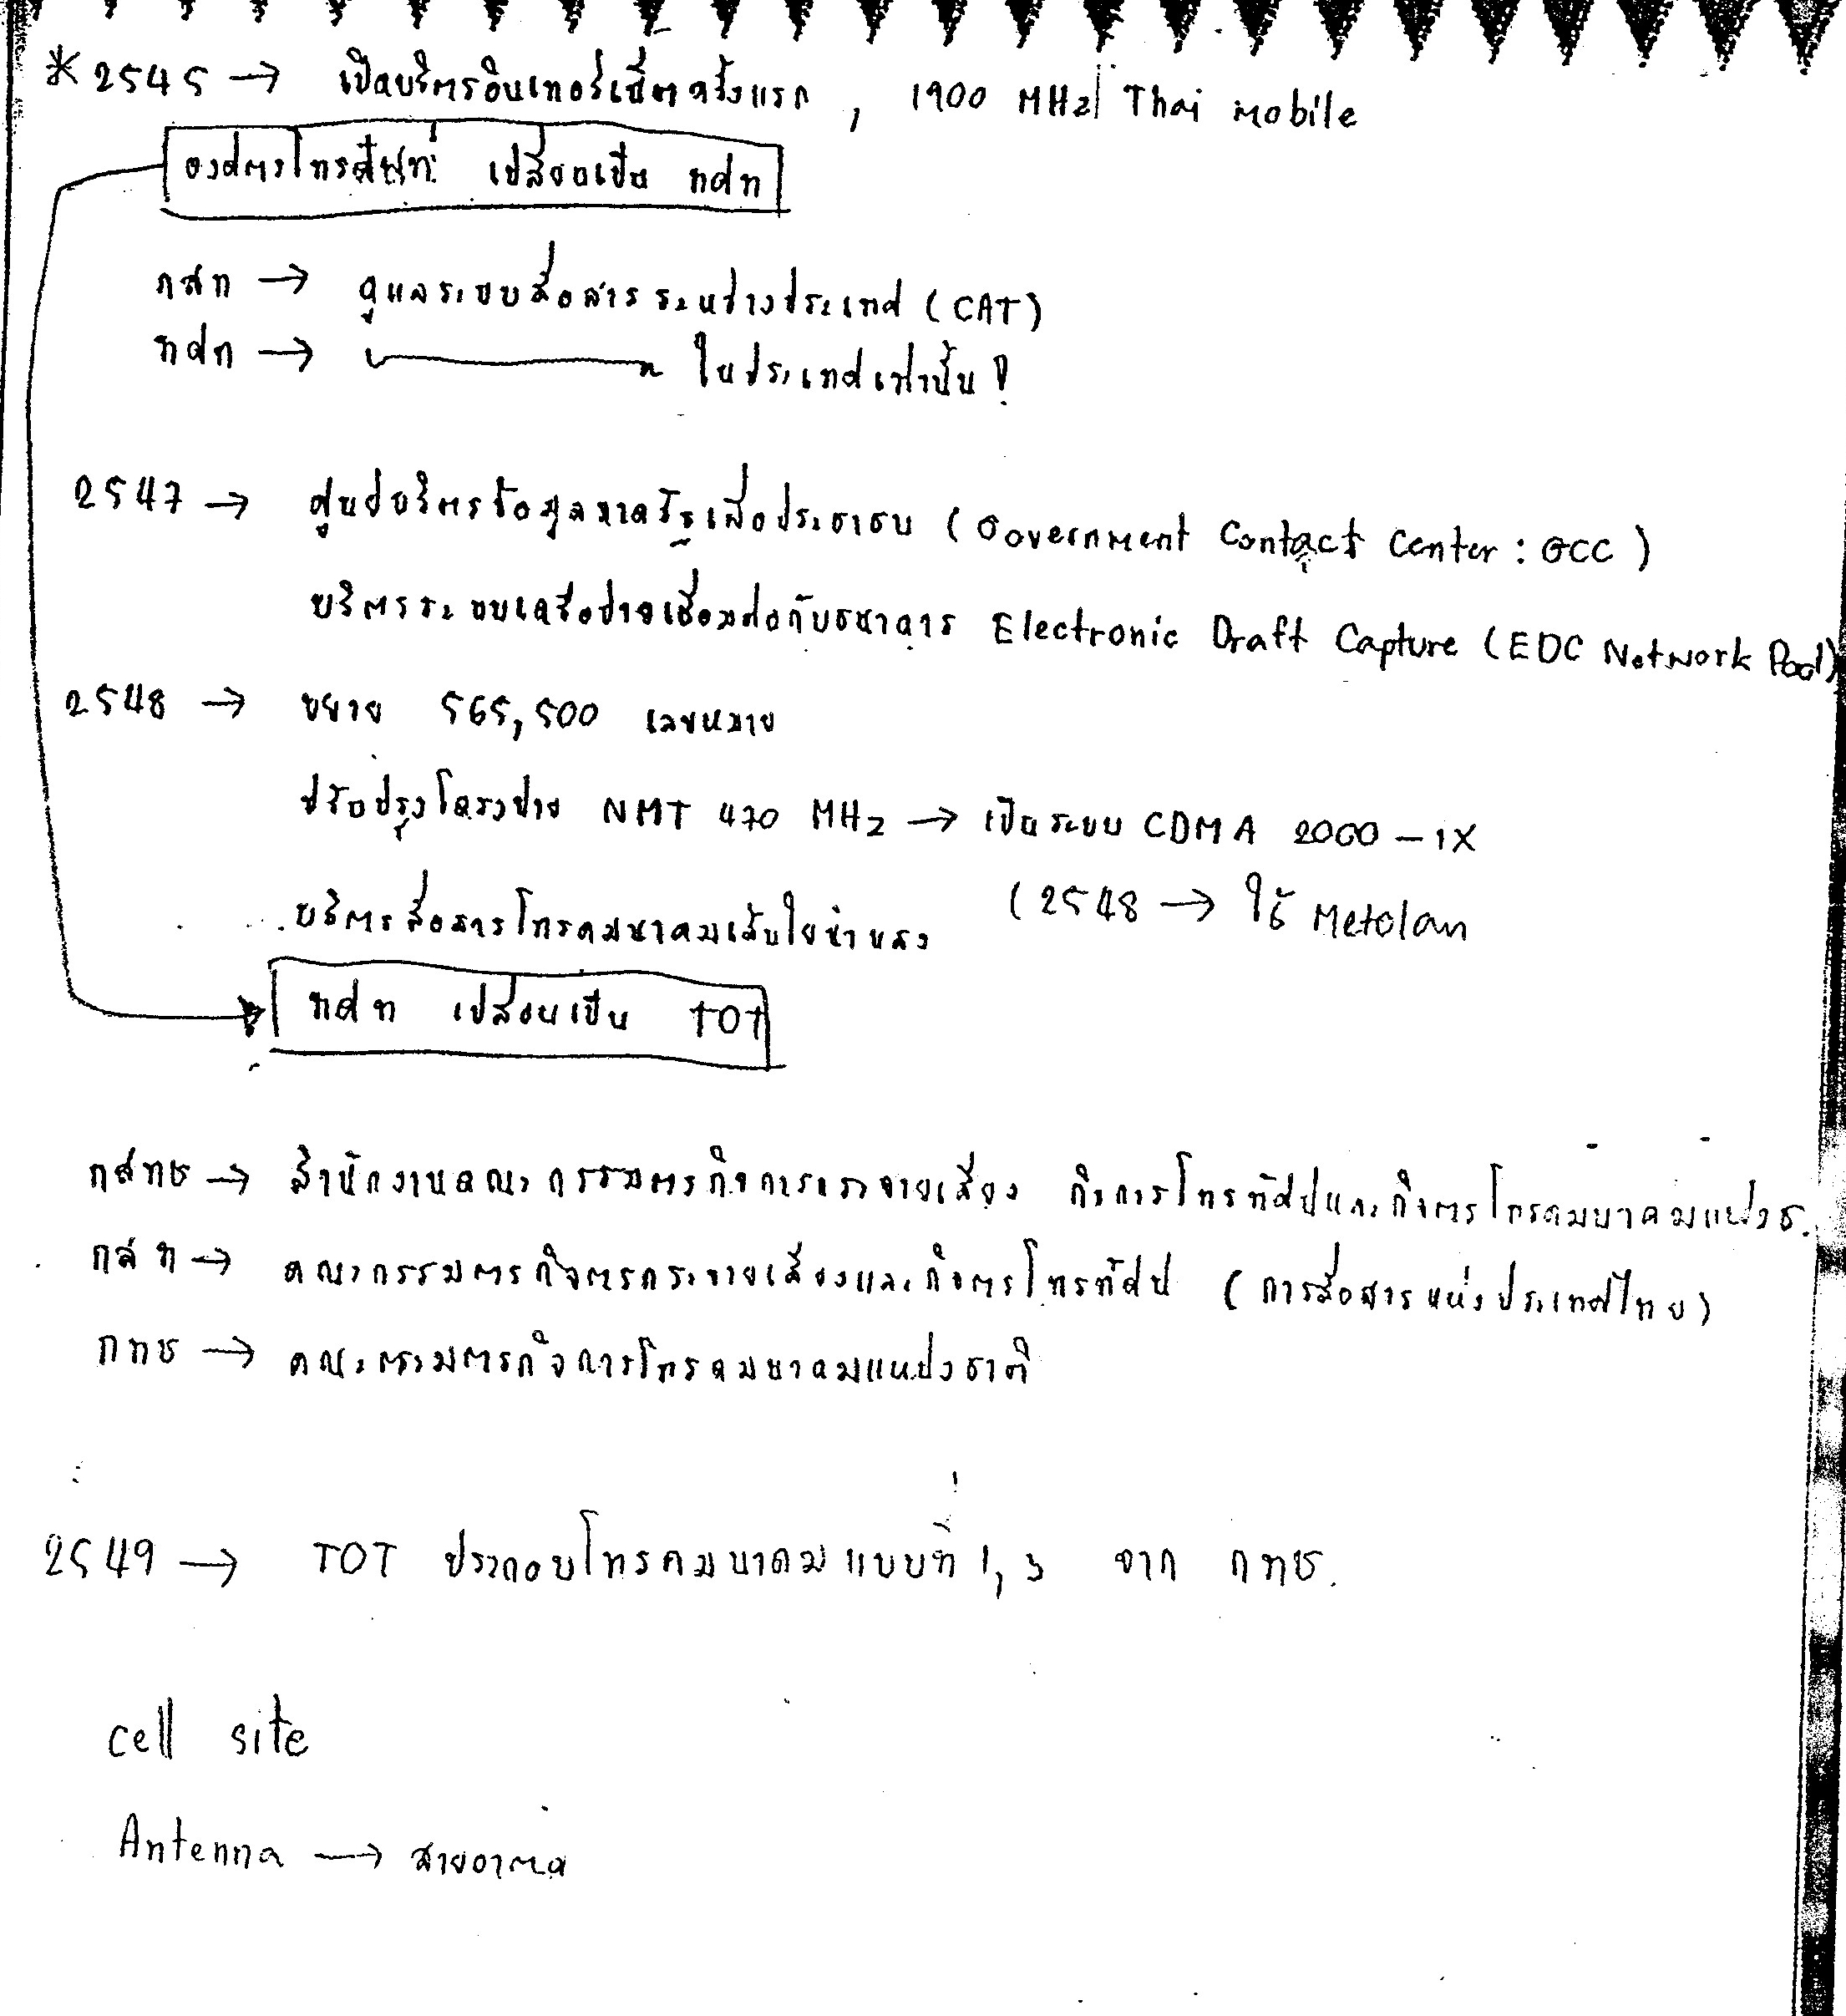 * 2545 → เปิดบริการอินเทอร์เน็ตครั้งแรก , 1900 MHz | Thai mobile
องค์การโทรศัพท์ เปลี่ยนเป็น ทศท
กสท → ดูแลระบบสื่อสารระหว่างประเทศ (CAT)
ทศท → ใน ประเทศเท่านั้น !
2547 → ศูนย์บริการข้อมูลภาครัฐเพื่อประชาชน (Government Contact Center : GCC )
บริการระบบเครือข่ายเชื่อมต่อกับธนาคาร Electronic Draft Capture (EDC Network Pool)
2548 → ขยาย 565,500 เลขหมาย
ปรับปรุงโครงข่าย NMT 470 MHz → เป็นระบบ CDMA 2000 - 1X
บริการสื่อสารโทรคมนาคมเส้นใยนำแสง (2548 → ใช้ Metolan
ทศท เปลี่ยนเป็น TOT
กสทช → สำนักงานคณะกรรมการกิจการกระจายเสียง กิจการโทรทัศน์และกิจการโทรคมนาคมแห่งช.
กสท → คณะกรรมการกิจการกระจายเสียงและกิจการโทรทัศน์ (การสื่อสารแห่งประเทศไทย)
กทช → คณะกรรมการกิจการโทรคมนาคมแห่งชาติ
2549 → TOT ประกอบโทรคมนาคมแบบที่ 1, 3 จาก กทช.
cell site
Antenna → สายอากาศ